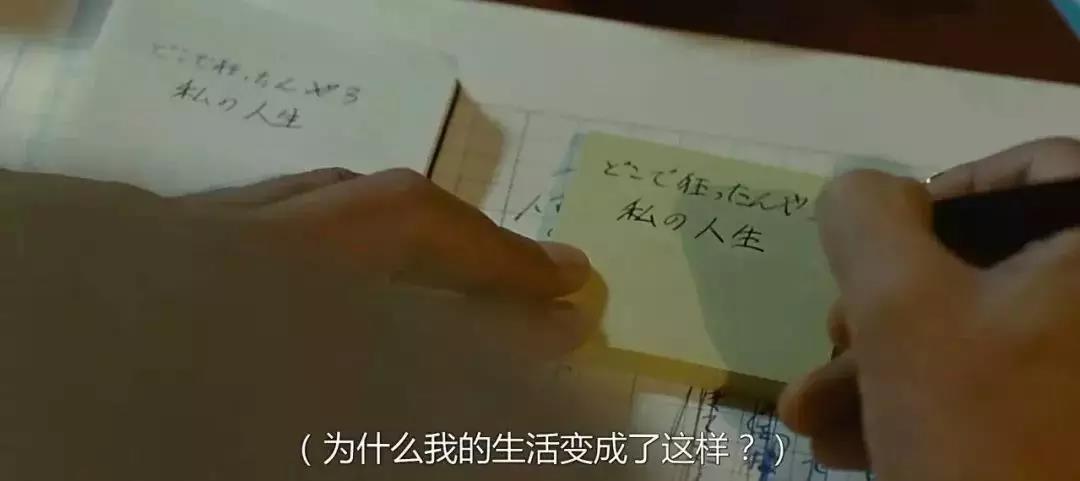 どこで狂ったんやろ
私の人生
どこで狂ったんや
私の人生
人
（为什么我的生活变成了这样？）